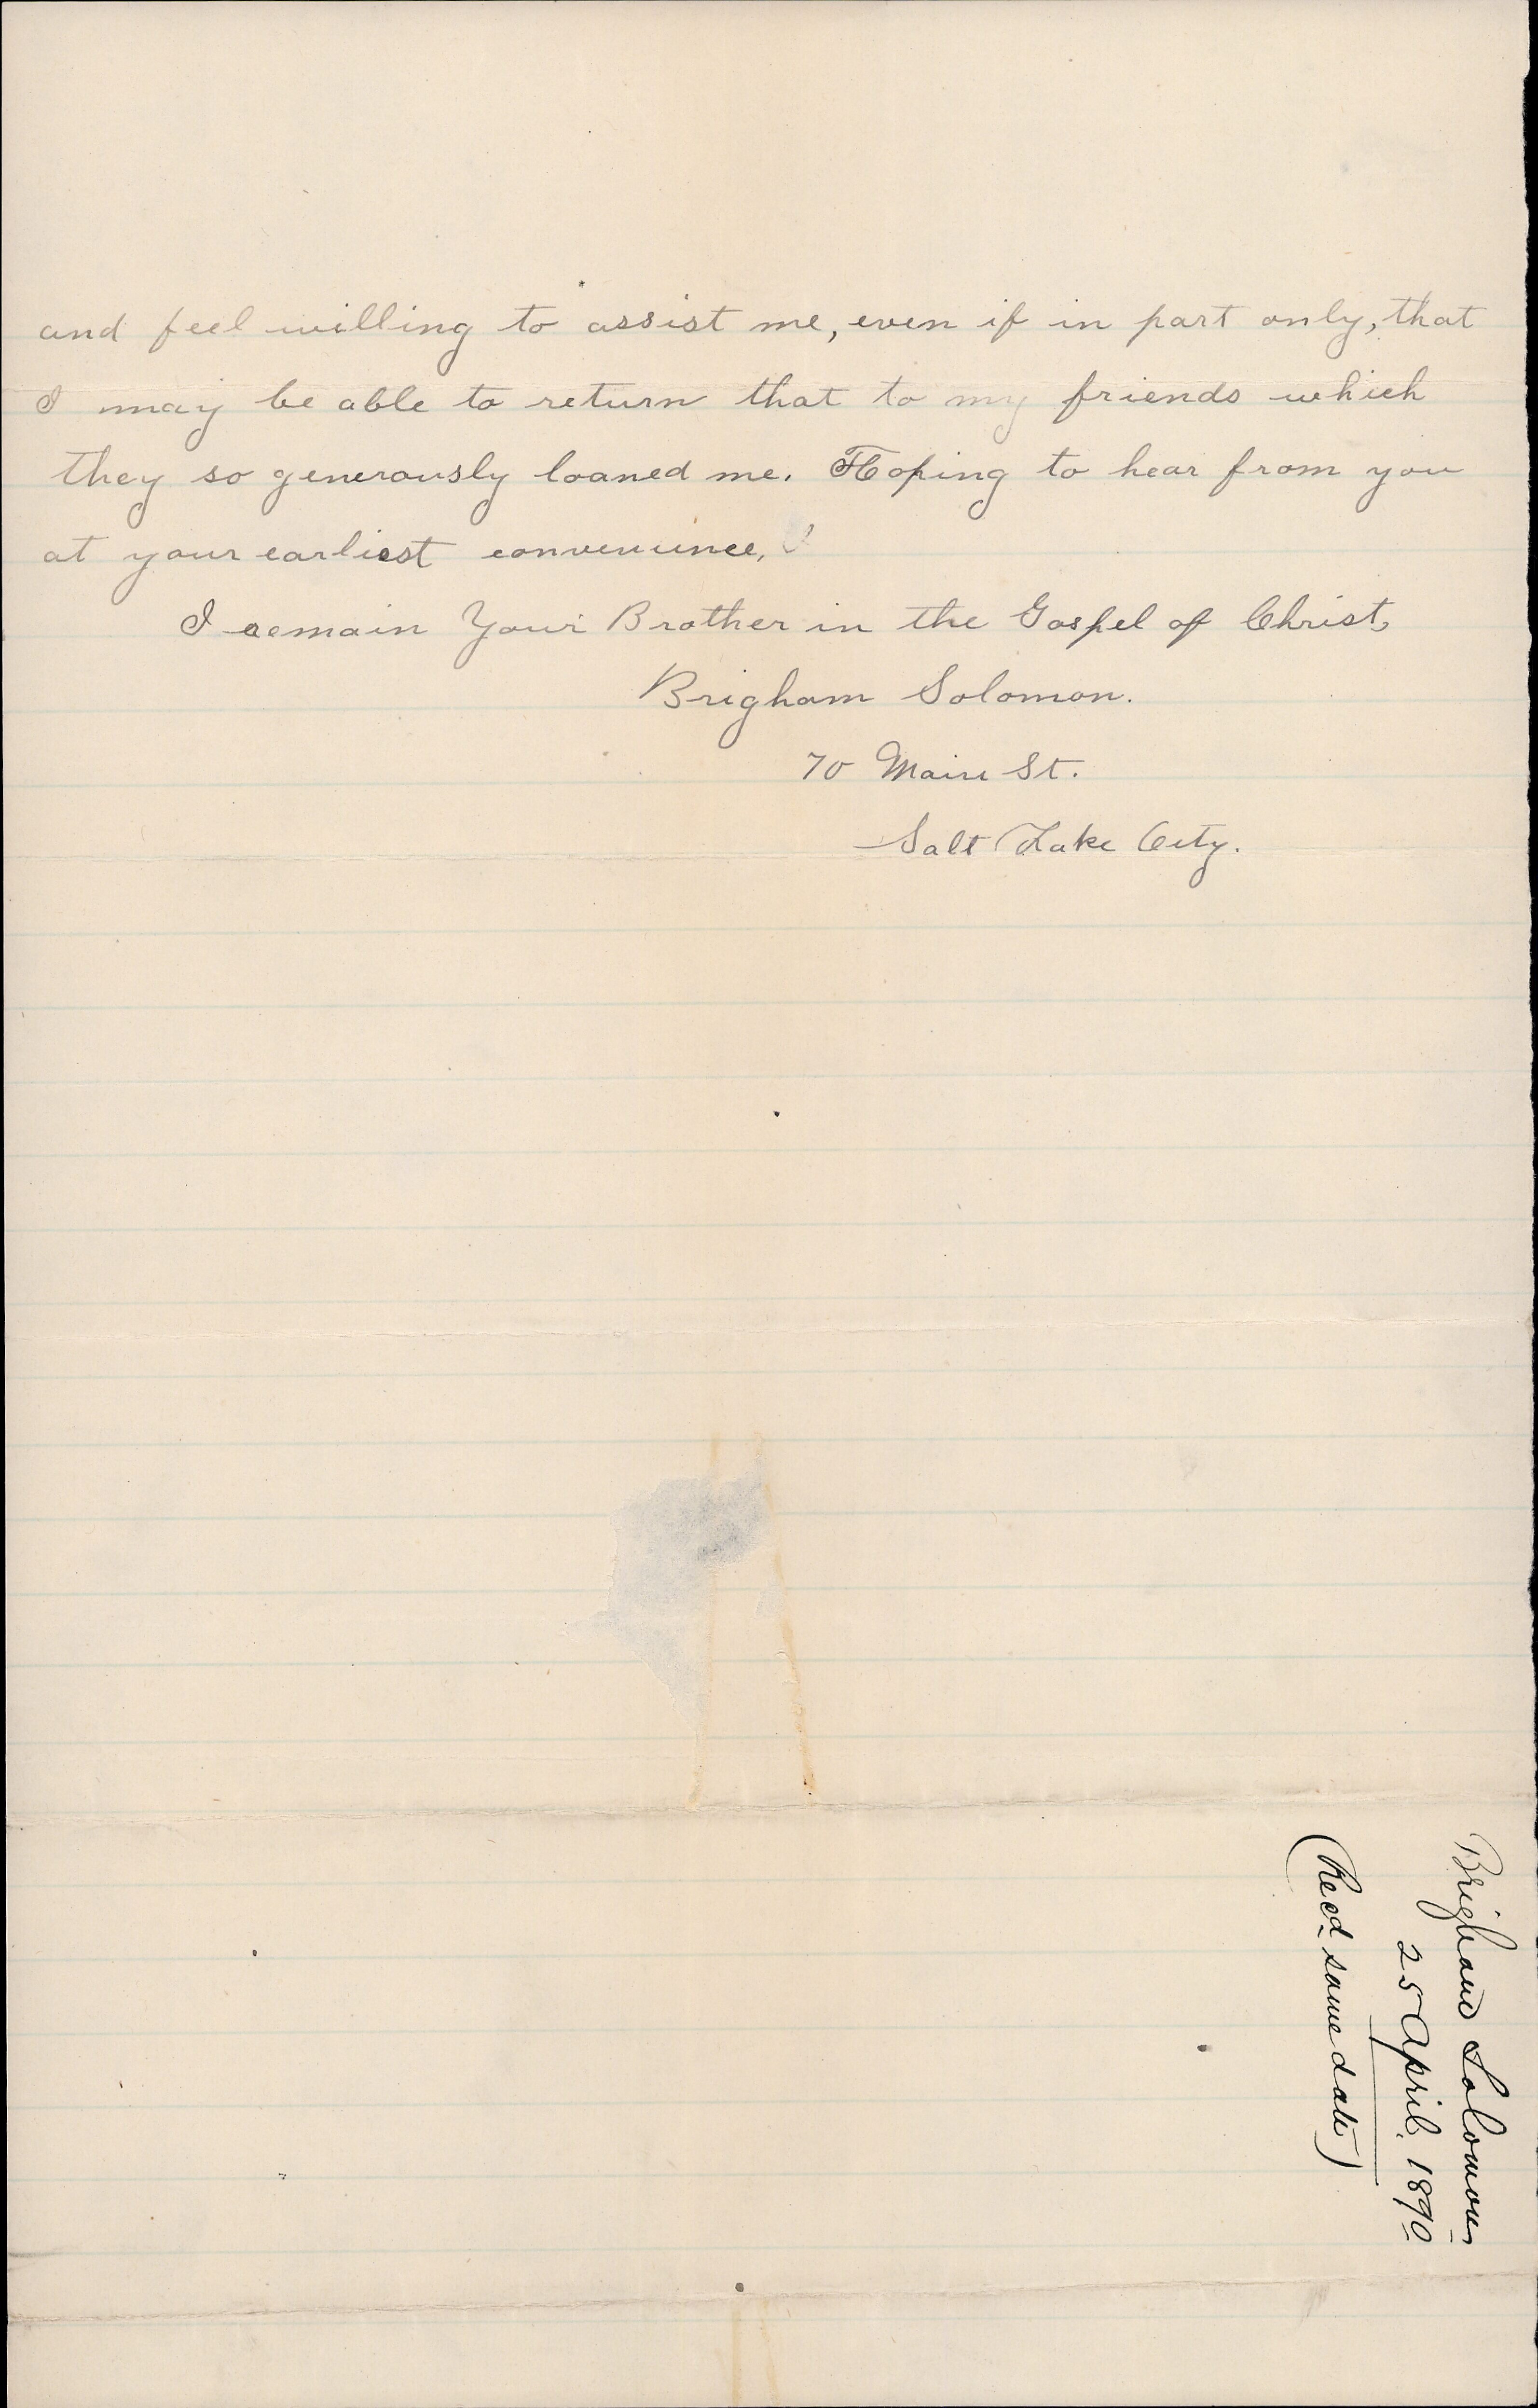 and feel willing to assist me, even if in part only, that
I may be able to return that to my friends which
they so generously loaned me. Hoping to hear from you
at your earliest convenience, I
I remain Your Brother in the Gospel of Christ,
Brigham Solomon.
70 Main St.
Salt Lake City.
Brigham Solomon
25 April, 1890
(Recd same date)